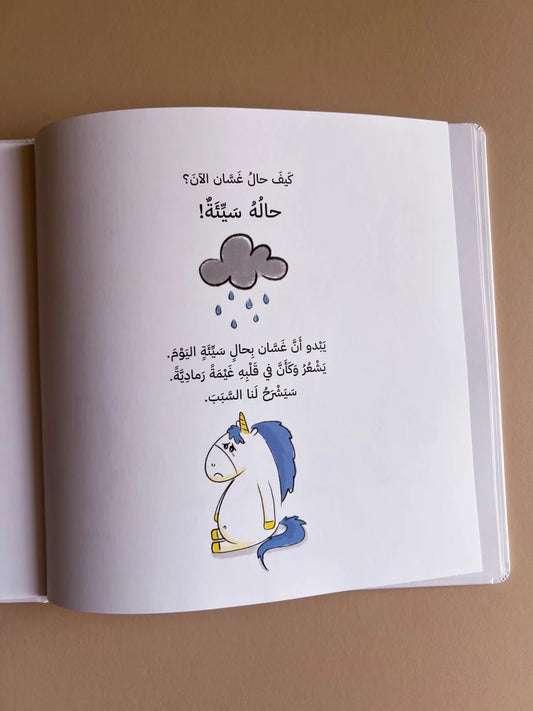 كَيفَ حالُ غَسَّان الآنَ؟
حالُهُ سَيِّئَةٌ!
يَبْدو أَنَّ غَسَّان بِحالٍ سَيِّئَةٍ اليَوْمَ.
يَشْعُرُ وَكَأَنَّ في قَلْبِهِ غَيْمَةً رَمادِيَّةً.
سَيَشْرَحُ لَنا السَّبَبَ.